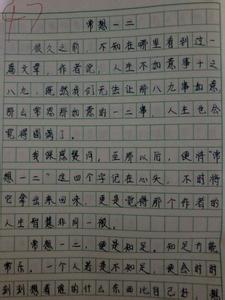 47
常想一二
很久之前，不知在哪里看到过一
篇文章，作者说，人生不如意事十之
八九，既然我们无法让那八九事如意
那么常想那如意的一二事，人生也会
觉得圆满了。
我深感赞同，至那以后，便将“常
想一二”这四个字记在心头，不时将
它拿出来回味，更是觉得那个作者的
人生智慧非同一般。
常想一二，便是知足，知足方能
常乐。一个人若是不知足，便会时时
刻刻想着的什么东西比自己好